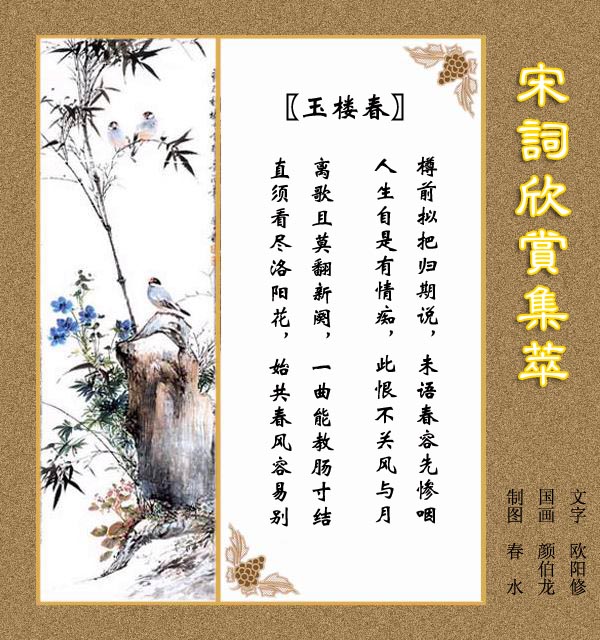 宋詞欣賞集萃
〖玉楼春〗
樽前拟把归期说，未语春容先惨咽
人生自是有情痴，此恨不关风与月
离歌且莫翻新阕，一曲能教肠寸结
直须看尽洛阳花，始共春风容易别
文字 欧阳修
国画 颜伯龙
制图 春 水